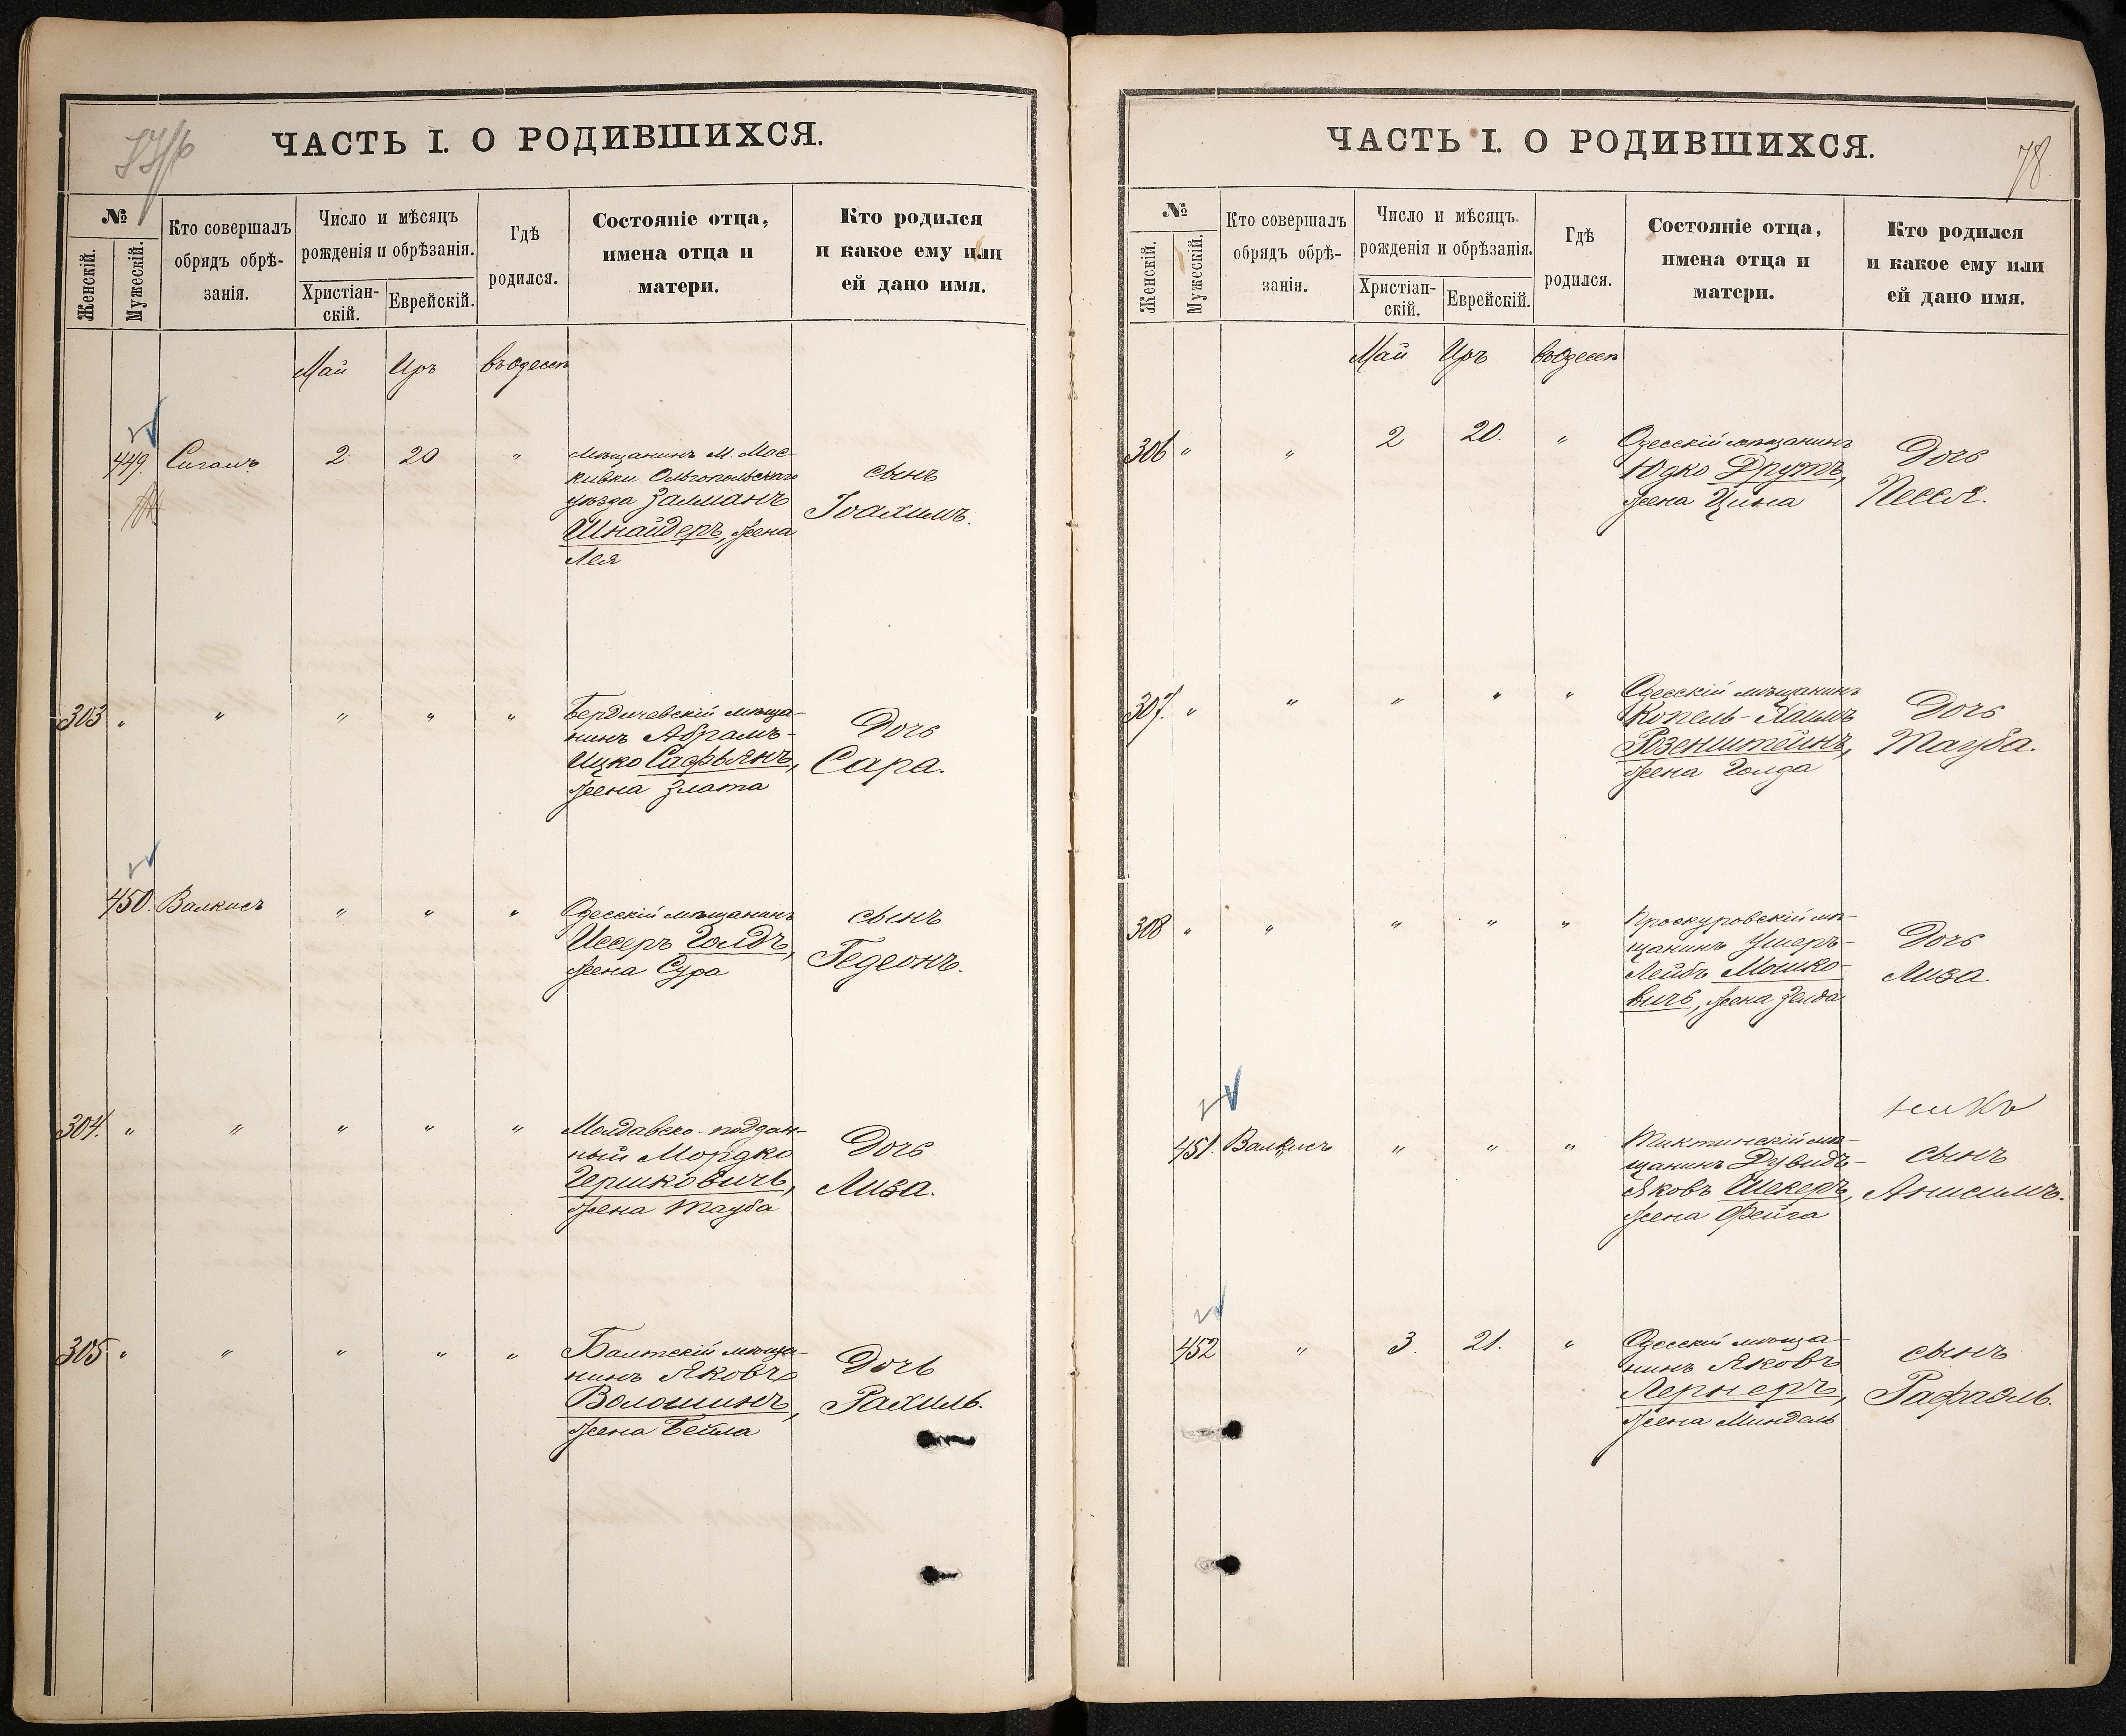 ЧАСТЬ I. О РОДИВШИХСЯ.
№
Женскій.
Мужескій.
Кто совершалъ
обрядъ обрѣ-
занія.
Число и мѣсяцъ
рожденія и обрѣзанія.
Христіан-
скій.
Еврейскій.
Гдѣ
родился.
Состояніе отца,
имена отца и
матери.
Кто родился
и какое ему или
ей дано имя.
Май Иръ въ Одессѣ
449. Сигалъ 2. 20 "
Мѣщанинъ М. Мяс-
кивки Ольгопольскаго
уѣзда Залманъ
Шнайдеръ, жена
Лея
сынъ
Іоахимъ.
303 " " " " "
Бердичевскій мѣща-
нинъ Абрамъ-
Ицко Сафьянъ,
жена Злата
Дочь
Сара.
450. Валкисъ " " "
Одесскій мѣщанинъ
Иссеръ Голдъ,
жена Сура
сынъ
Гедеонъ.
304. " " " " "
Молдавско-поддан-
ный Мордко
Гершковичъ,
жена Тауба
Дочь
Лиза.
305 " " " " "
Балтскій мѣща-
нинъ Яковъ
Волошинъ,
жена Бейла
Дочь
Рахиль.
ЧАСТЬ I. О РОДИВШИХСЯ.
78.
№
Женскій.
Мужескій.
Кто совершалъ
обрядъ обрѣ-
занія.
Число и мѣсяцъ
рожденія и обрѣзанія.
Христіан-
скій.
Еврейскій.
Гдѣ
родился.
Состояніе отца,
имена отца и
матери.
Кто родился
и какое ему или
ей дано имя.
Май Иръ въ Одессѣ
306 " " 2 20. "
Одесскій мѣщанинъ
Юдко Друтъ,
жена Цина
Дочь
Песся.
307. " " " " "
Одесскій мѣщанинъ
Копель-Хаимъ
Розенштейнъ,
жена Голда
Дочь
Тауба.
308 " " " " "
Проскуровскій мѣ-
щанинъ Ушеръ-
Лейбъ Мошко-
вичъ, жена Зелда
Дочь
Лиза.
451. Валкисъ " " "
Тиктинскій мѣ-
щанинъ Дувидъ-
Яковъ Шекеръ,
жена Фейга
сынъ
Анисимъ.
452 " 3. 21. "
Одесскій мѣща-
нинъ Яковъ
Лернеръ,
жена Миндель
сынъ
Рафаэль.